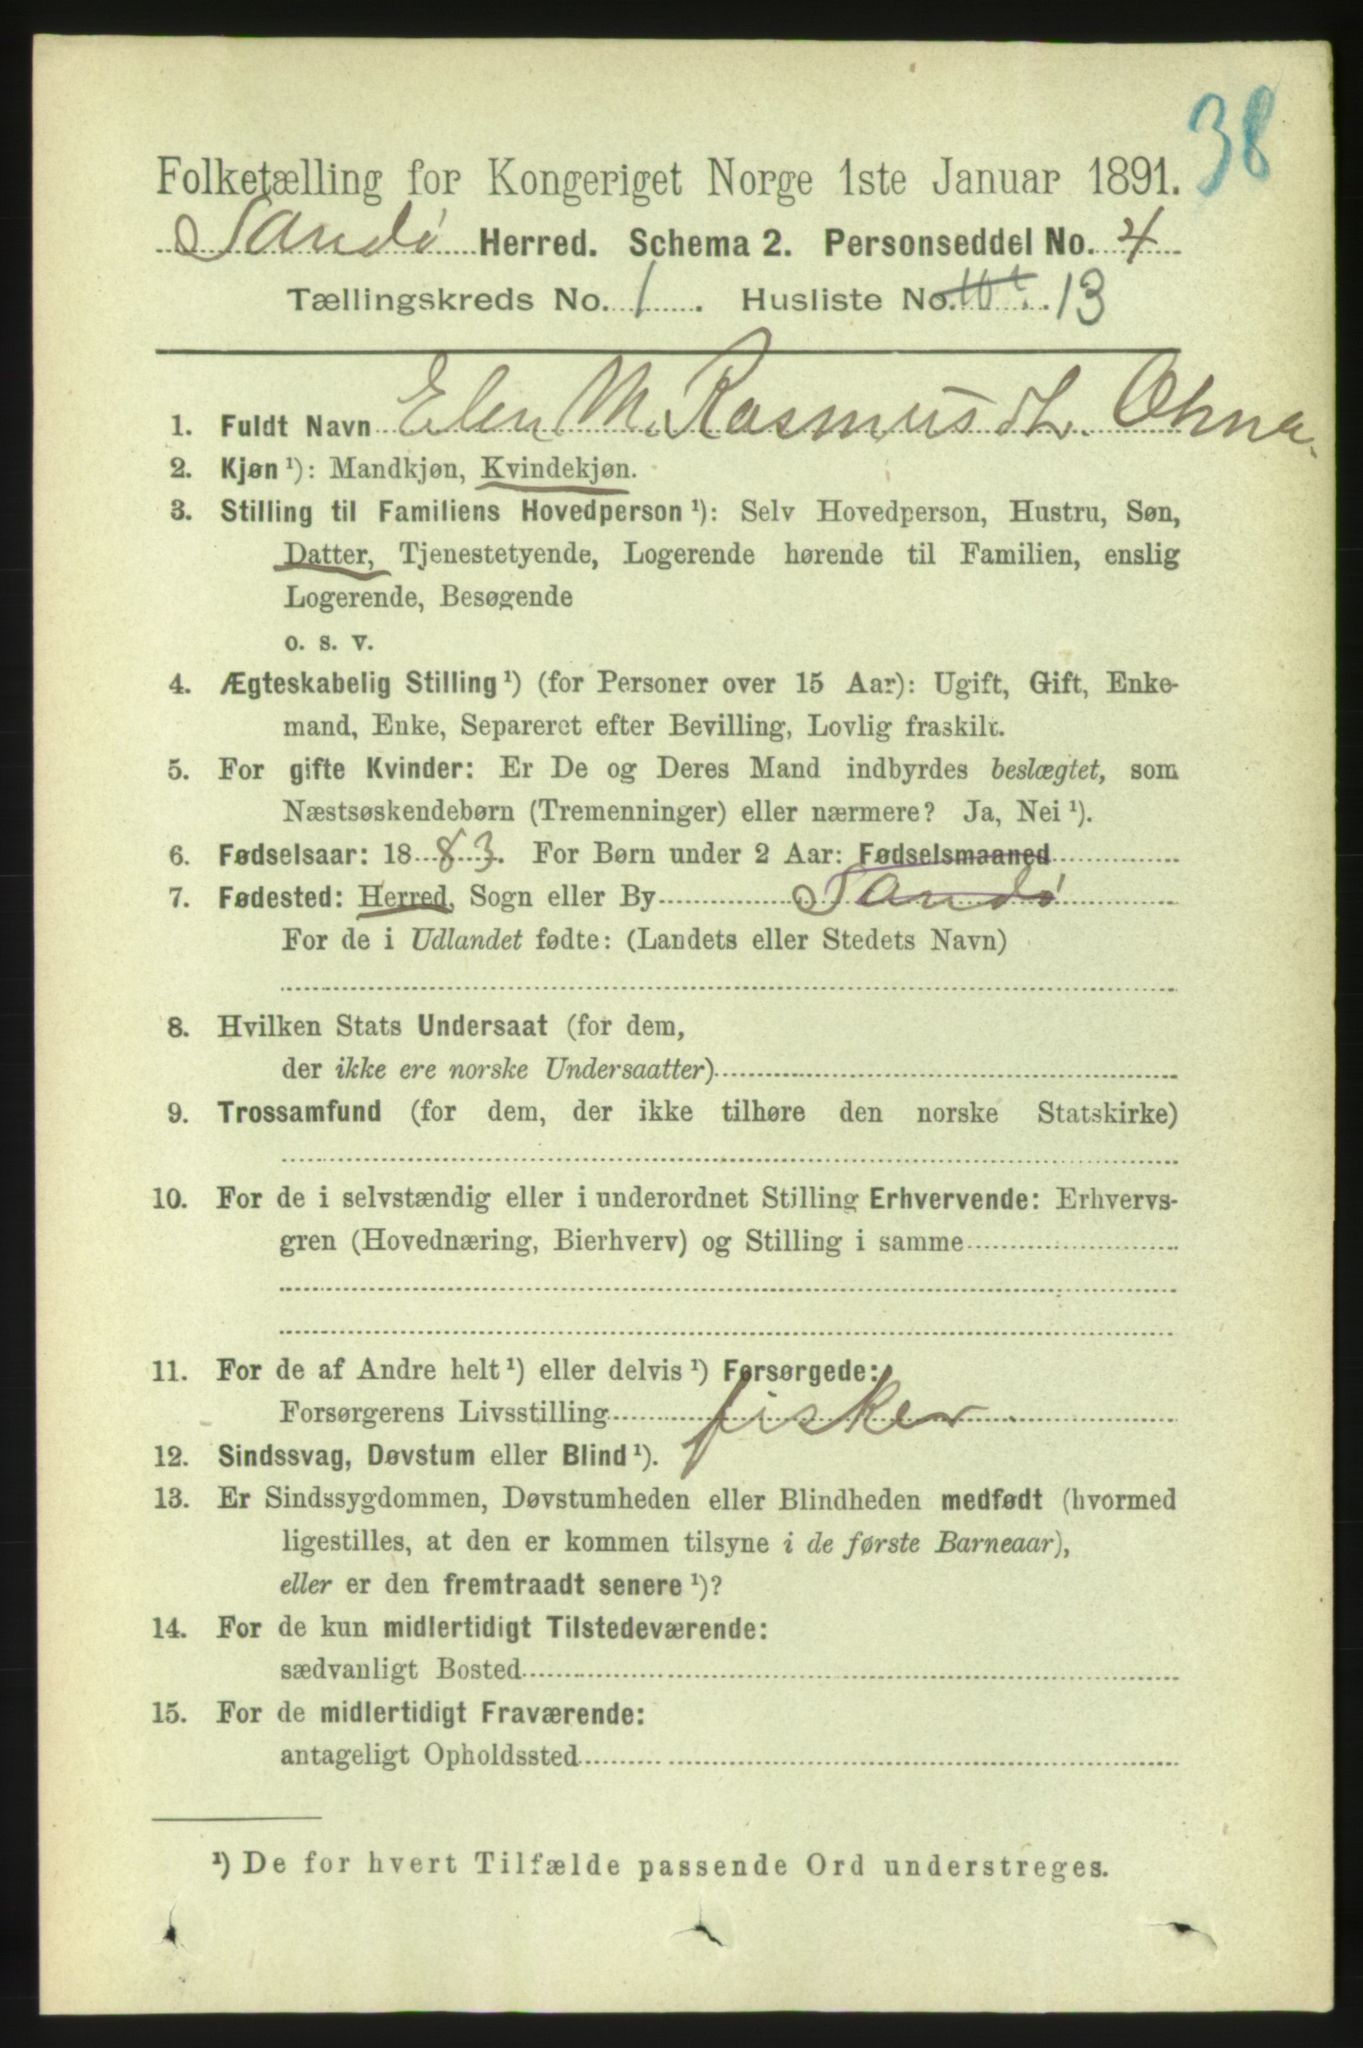 38
Folketælling for Kongeriget Norge 1ste Januar 1891.
Sandø Herred. Schema 2. Personseddel No. 4
Tællingskreds No. 1. Husliste No. 10. 13
1. Fuldt Navn Elen M. Rasmusdt. Ohna.
2. Kjøn ¹): Mandkjøn, Kvindekjøn.
3. Stilling til Familiens Hovedperson ¹): Selv Hovedperson, Hustru, Søn,
Datter, Tjenestetyende, Logerende hørende til Familien, enslig
Logerende, Besøgende
o. s. v.
4. Ægteskabelig Stilling ¹) (for Personer over 15 Aar): Ugift, Gift, Enke-
mand, Enke, Separeret efter Bevilling, Lovlig fraskilt.
5. For gifte Kvinder: Er De og Deres Mand indbyrdes beslægtet, som
Næstsøskendebørn (Tremenninger) eller nærmere? Ja, Nei ¹).
6. Fødselsaar: 1883. For Børn under 2 Aar: Fødselsmaaned
7. Fødested: Herred, Sogn eller By Sandø
For de i Udlandet fødte: (Landets eller Stedets Navn)
8. Hvilken Stats Undersaat (for dem,
der ikke ere norske Undersaatter)
9. Trossamfund (for dem, der ikke tilhøre den norske Statskirke)
10. For de i selvstændig eller i underordnet Stilling Erhvervende: Erhvervs-
gren (Hovednæring, Bierhverv) og Stilling i samme
11. For de af Andre helt ¹) eller delvis ¹) Forsørgede:
Forsørgerens Livsstilling fisker
12. Sindssvag, Døvstum eller Blind ¹).
13. Er Sindssygdommen, Døvstumheden eller Blindheden medfødt (hvormed
ligestilles, at den er kommen tilsyne i de første Barneaar),
eller er den fremtraadt senere ¹)?
14. For de kun midlertidigt Tilstedeværende:
sædvanligt Bosted
15. For de midlertidigt Fraværende:
antageligt Opholdssted
¹) De for hvert Tilfælde passende Ord understreges.